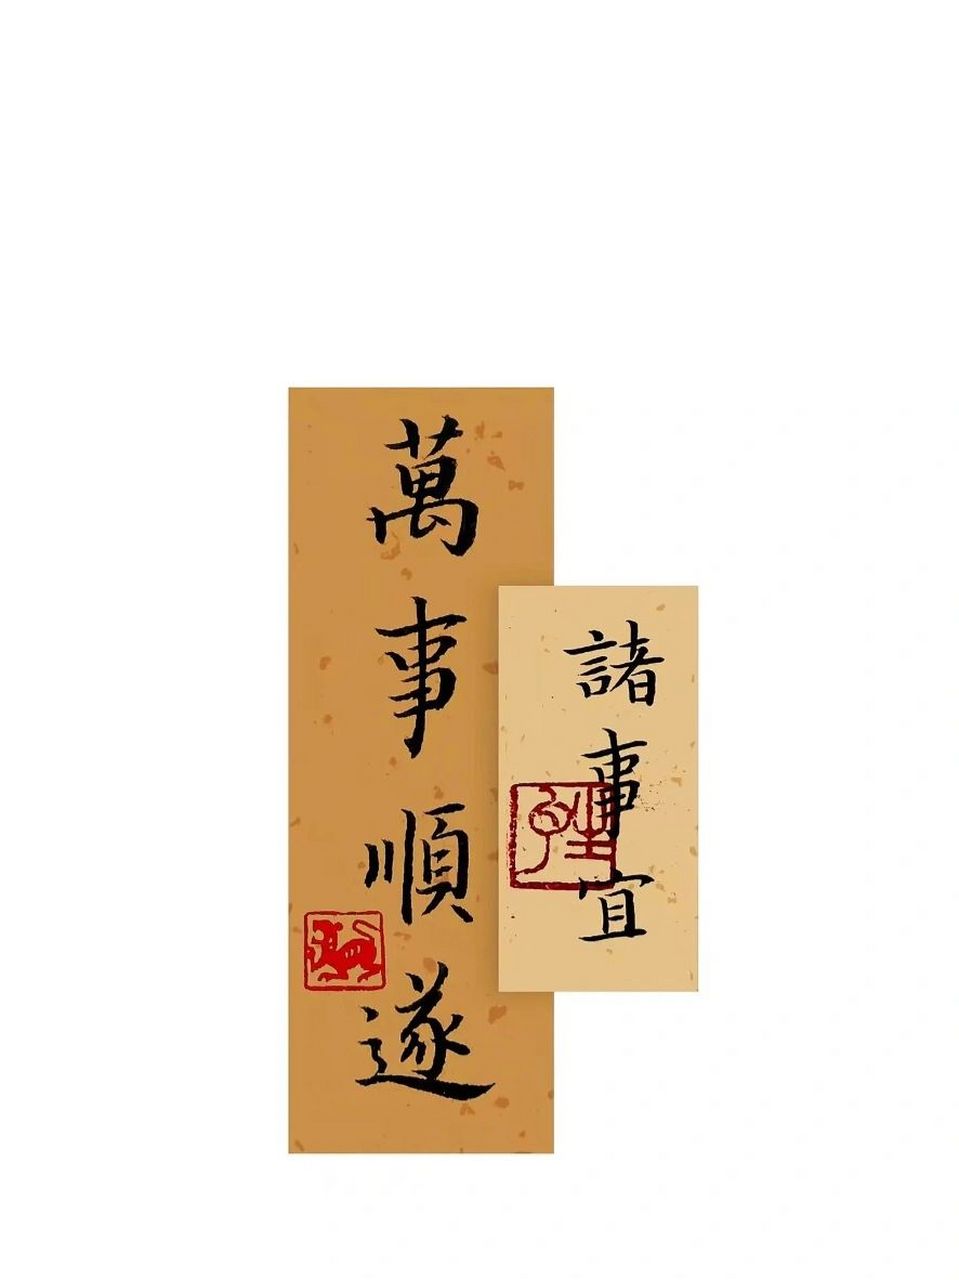 萬事順遂
諸事宜